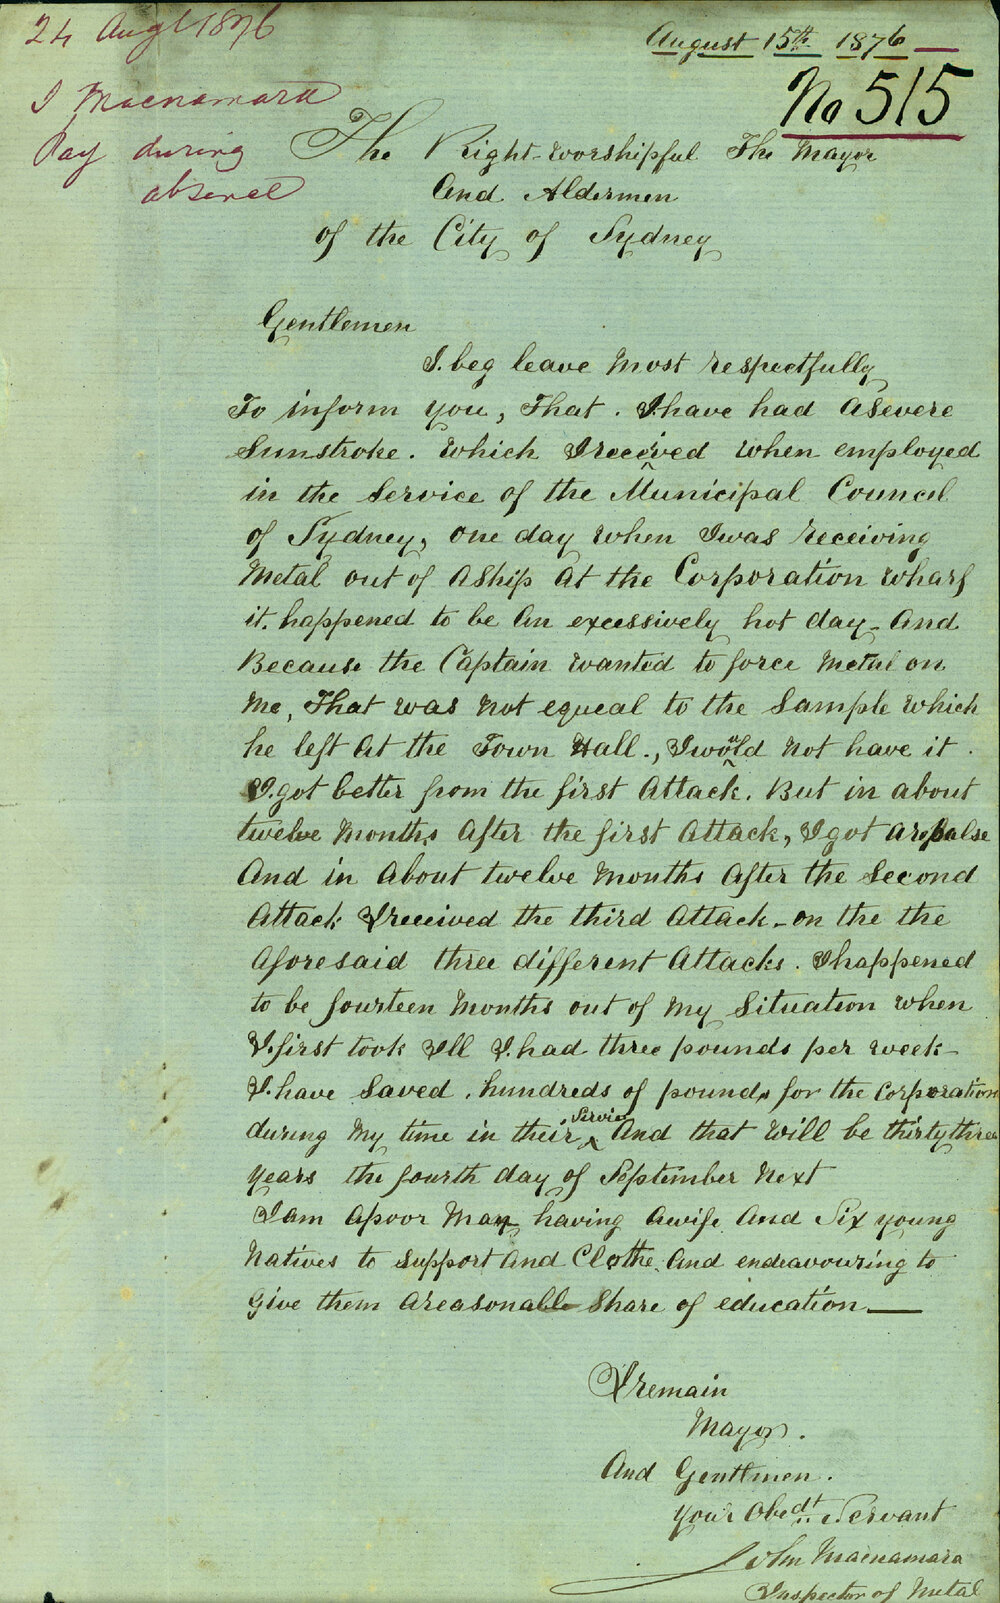 24 Augt 1876
August 15th 1876
No 515
J Macnamara
Pay during
absence
The Right-worshipful The Mayor
And Aldermen
of the City of Sydney
Gentlemen
I. beg leave Most respectfully
To inform you, That. I have had a severe
Sunstroke. Which I received when employed
in the Service of the Municipal Council
of Sydney, one day when I was receiving
Metal out of a Ship at the Corporation wharf
it. happened to be an excessively hot day - and
Because the Captain wanted to force Metal on
Me, That was not equeal to the Sample which
he left at the Town Hall., I would not have it.
I. got better from the first Attack. But in about
twelve Months After the first Attack, I got a
And in About twelve Months After the Second
Attack I received the third Attack - on the the
Aforesaid three different Attacks. I happened
to be fourteen Months out of My Situation when
I. first took Ill I. had three pounds per week -
I. have Saved. hundreds of pounds for the Corporation
during My time in their Service And that will be thirty three
years the fourth day of September Next
I am a poor Man having a wife And Six young
Natives to Support And Clothe. And endeavouring to
Give them a reasonable Share of education —
I remain
Mayor.
And Gentlmen.
your Obedt. Servant
John Macnamara
Inspector of Metal